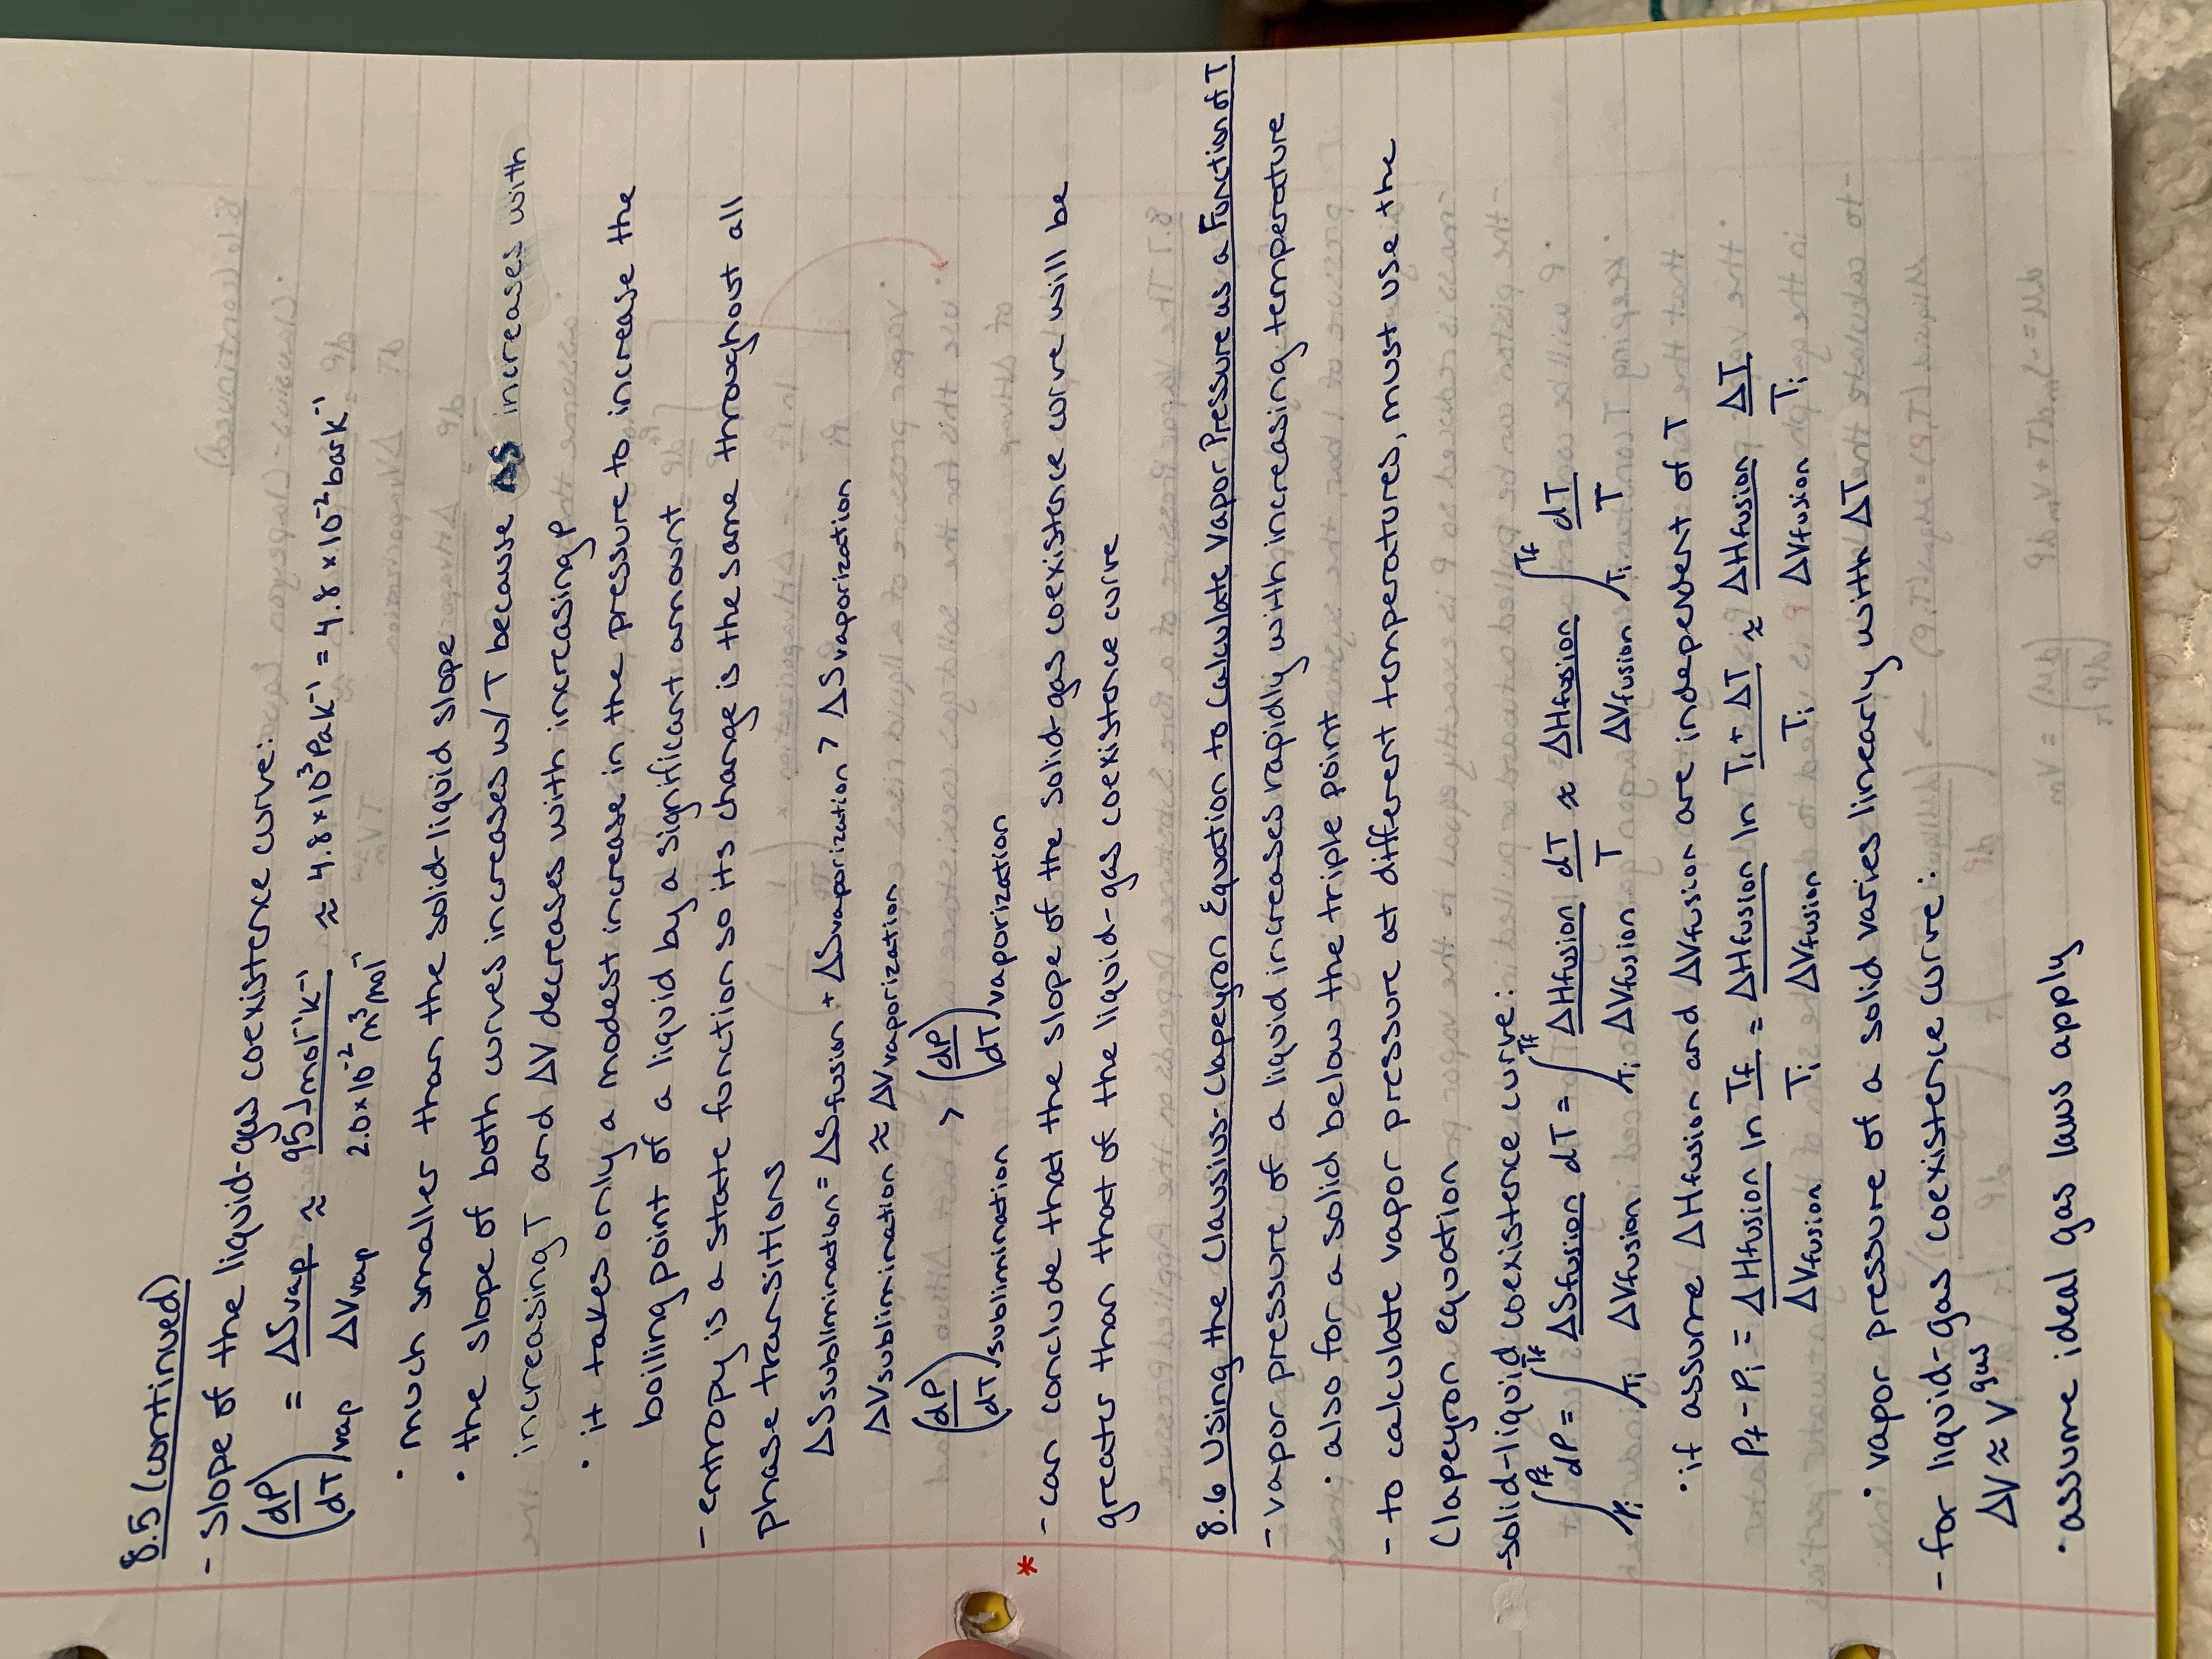 8.5 (continued)
- slope of the liquid-gas coexistence curve:
(dP/dT)vap = ΔSvap/ΔVvap ≈ 95 J mol⁻¹ K⁻¹ / 2.0×10⁻² m³ mol⁻¹ ≈ 4.8×10³ Pa K⁻¹ = 4.8×10⁻² bar K⁻¹
• much smaller than the solid-liquid slope
• the slope of both curves increases w/ T because ΔS increases with
increasing T and ΔV decreases with increasing P
• it takes only a modest increase in the pressure to increase the
boiling point of a liquid by a significant amount
- entropy is a state function so its change is the same throughout all
phase transitions
ΔSsublimination = ΔSfusion + ΔSvaporization > ΔSvaporization
ΔVsublimination ≈ ΔVvaporization
(dP/dT)sublimination > (dP/dT)vaporization
* - can conclude that the slope of the solid-gas coexistence curve will be
greater than that of the liquid-gas coexistence curve
8.6 Using the Clausius-Clapeyron Equation to Calculate Vapor Pressure as a Function of T
- vapor pressure of a liquid increases rapidly with increasing temperature
• also for a solid below the triple point
- to calculate vapor pressure at different temperatures, must use the
Clapeyron equation
- solid-liquid coexistence curve:
∫_Pi^Pf dP = ∫_Ti^Tf ΔSfusion/ΔVfusion dT = ∫_Ti^Tf ΔHfusion/ΔVfusion dT/T ≈ ΔHfusion/ΔVfusion ∫_Ti^Tf dT/T
• if assume ΔHfusion and ΔVfusion are independent of T
Pf - Pi = ΔHfusion/ΔVfusion ln Tf/Ti = ΔHfusion/ΔVfusion ln Ti + ΔT/Ti ≈ ΔHfusion/ΔVfusion ΔT/Ti
• vapor pressure of a solid varies linearly with ΔT
- for liquid-gas coexistence curve:
ΔV ≈ V^gas
• assume ideal gas laws apply